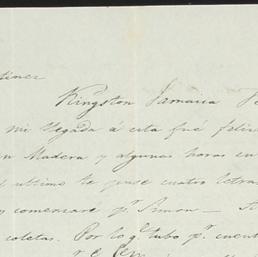 tinez
Kingston Jamaica
mi llegada á esta fué feliz
Madera y algunas horas en
ultimo te puse cuatro letras
y comenzaré pr Simon — 
coletas. Por lo qe tubo pr cuent